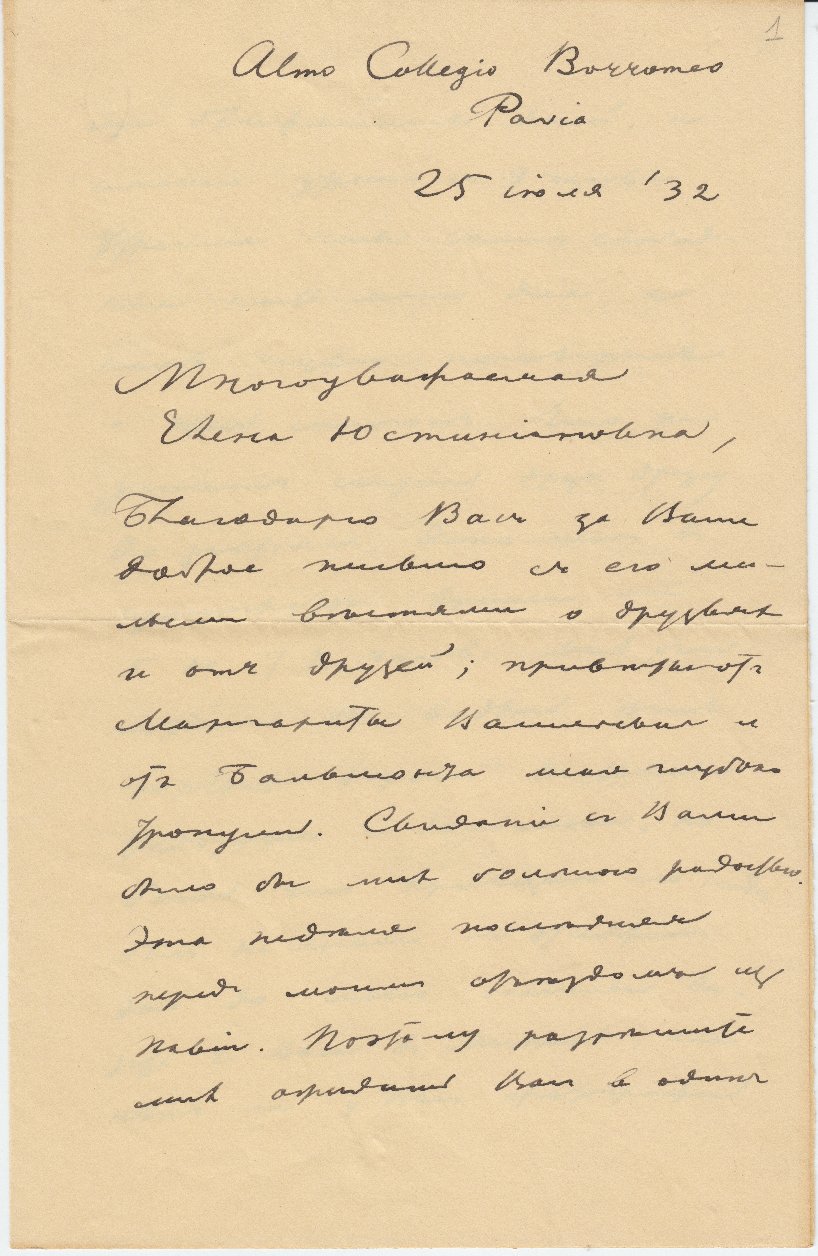 1
Almo Collegio Borromeo
Pavia
25 іюля '32
Многоуважаемая
Елена Юстиніановна,
Благодарю Васъ за Ваше
доброе письмо съ его ми-
лыми вѣстями о друзьяхъ
и отъ друзей; привѣты отъ
Маргариты Васильевны и
отъ Бальмонта меня глубоко
тронули. Свиданіе съ Вами
было бы мнѣ большою радостью.
Эта недѣля послѣдняя
передъ моимъ отъѣздомъ из
Павіи. Поэтому разрѣшите
мнѣ ожидать Вас в один